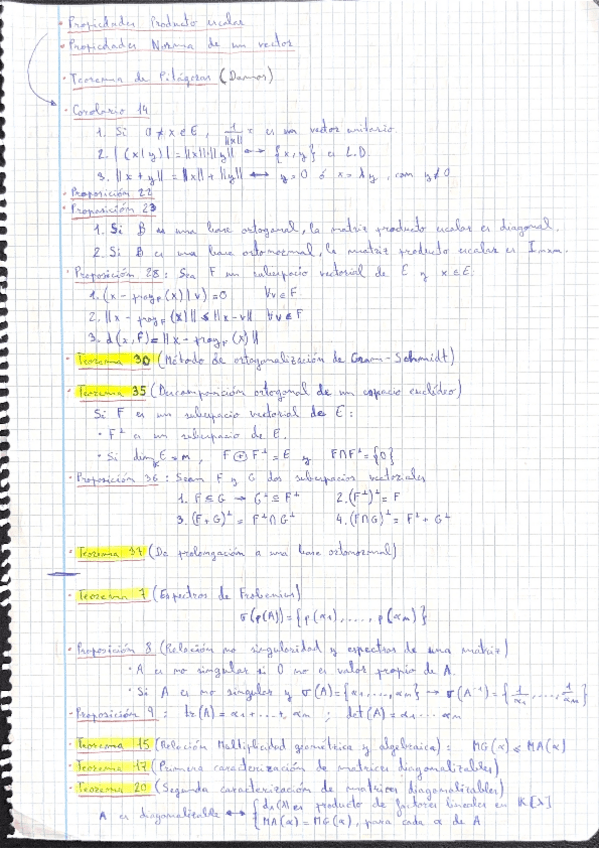 · Propiedades Producto escalar
· Propiedades Norma de un vector
· Teorema de Pitágoras (Damos)
· Corolario 14
1. Si 0 ≠ x ∈ E, 1/||x|| · es un vector unitario.
2. |(x|y)| = ||x||·||y|| ↔ {x,y} es L.D.
3. ||x + y|| = ||x|| + ||y|| ↔ y=0 ó x=λy, con y≠0
· Proposición 22
· Proposición 23
1. Si B es una base ortogonal, la matriz producto escalar es diagonal.
2. Si B es una base ortonormal, la matriz producto escalar es Inxn.
· Proposición 28: Sea F un subespacio vectorial de E y x ∈ E:
1. (x - proy_F (x) | v) = 0 ∀v ∈ F
2. ||x - proy_F (x)|| ≤ ||x - v|| ∀v ∈ F
3. d(x,F) = ||x - proy_F (x)||
· Teorema 30 (Método de ortogonalización de Gram-Schmidt)
· Teorema 35 (Descomposición ortogonal de un espacio euclídeo)
Si F es un subespacio vectorial de E:
· F^⊥ es un subespacio de E.
· Si dim_K E = n, F ⊕ F^⊥ = E y F ∩ F^⊥ = {0}
· Proposición 36: Sean F y G dos subespacios vectoriales
1. F ⊆ G → G^⊥ ⊆ F^⊥ 2. (F^⊥)^⊥ = F
3. (F+G)^⊥ = F^⊥ ∩ G^⊥ 4. (F∩G)^⊥ = F^⊥ + G^⊥
· Teorema 37 (De prolongación a una base ortonormal)
· Teorema 7 (Espectros de Frobenius)
σ(p(A)) = {p(α1), ..., p(αn)}
· Proposición 8 (Relación no singularidad y espectros de una matriz)
· A es no singular si 0 no es valor propio de A.
· Si A es no singular y σ(A) = {α1, ..., αn} → σ(A^-1) = {1/α1, ..., 1/αn}
· Proposición 9: tr(A) = α1 + ... + αn ; det(A) = α1 ··· αn
· Teorema 15 (Relación Multiplicidad geométrica y algebraica): MG(α) ≤ MA(α)
· Teorema 17 (Primera caracterización de matrices diagonalizables)
· Teorema 20 (Segunda caracterización de matrices diagonalizables)
A es diagonalizable ↔ { d_A(λ) es producto de factores lineales en K[λ]
MA(α) = MG(α), para cada α de A